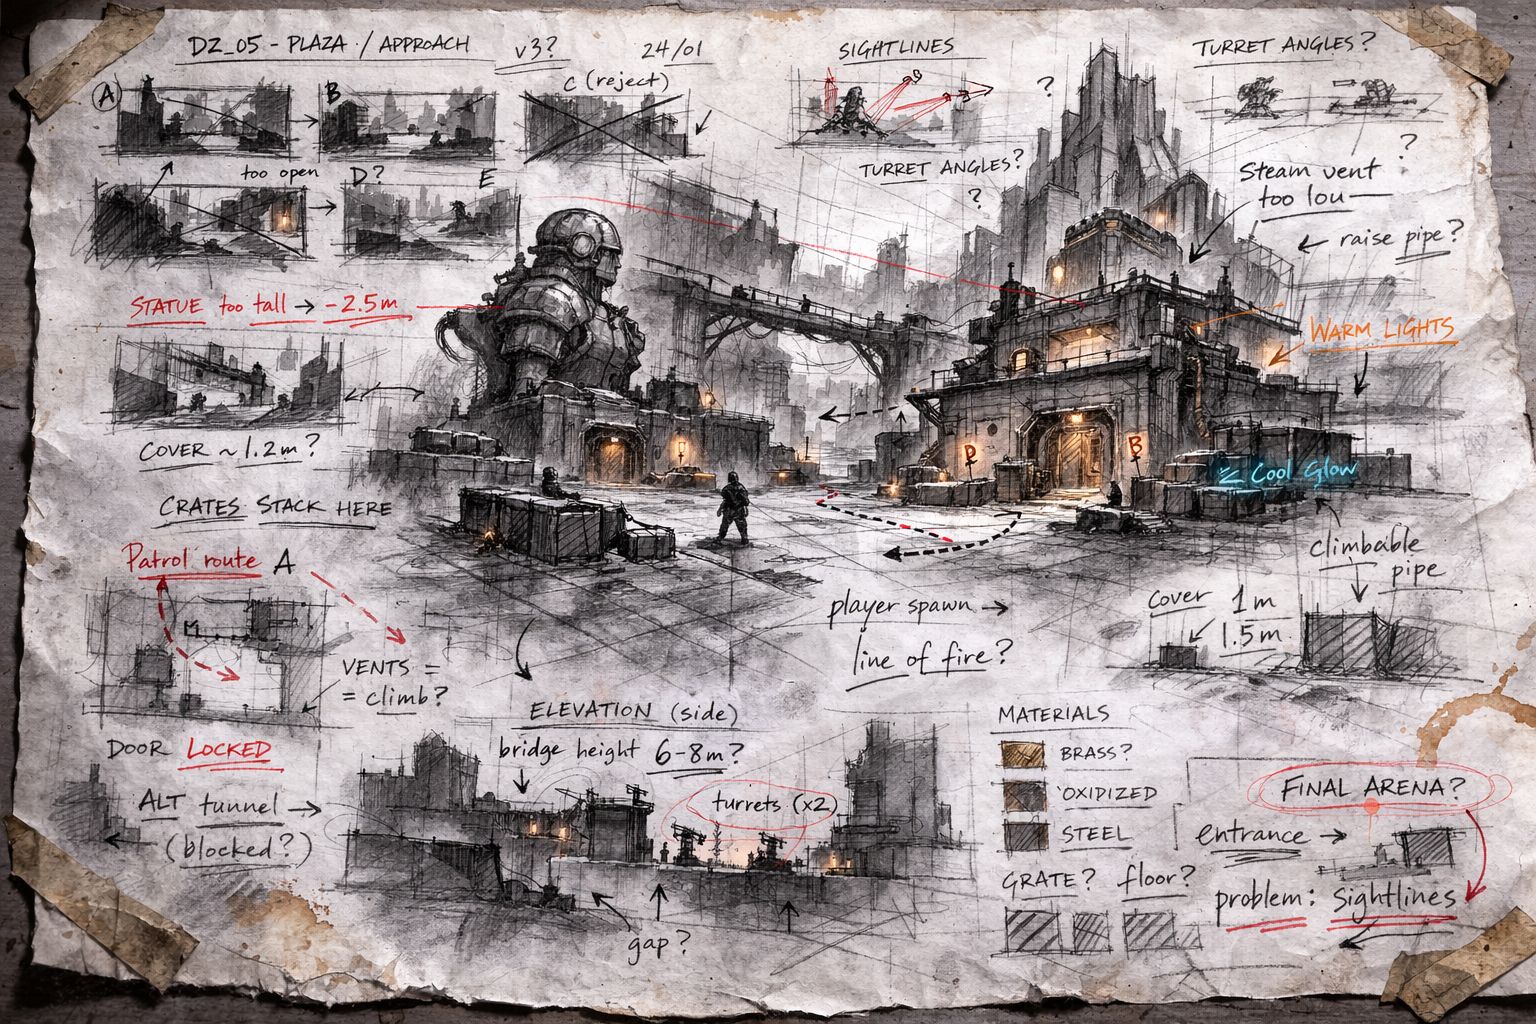 DZ_05 - PLAZA / APPROACH
v3?
24/01
SIGHTLINES
TURRET ANGLES?
A
B
C (reject)
?
too open
D?
E
TURRET ANGLES?
?
?
Steam vent
too lou
← raise pipe?
STATUE too tall → -2.5m
WARM LIGHTS
COVER ~1.2m?
D
B
Cool Glow
CRATES STACK HERE
Patrol route A
climbable
pipe
player spawn →
cover 1m
1.5m
line of fire?
VENTS =
= climb?
ELEVATION (side)
MATERIALS
DOOR LOCKED
bridge height 6-8m?
BRASS?
ALT tunnel →
turrets (x2)
OXIDIZED
FINAL ARENA?
(blocked?)
STEEL
entrance →
GRATE? floor?
problem: Sightlines
gap?